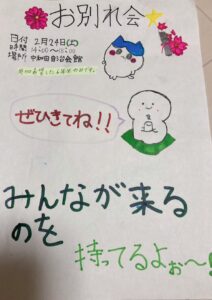 お別れ会
日付 2月24日(土)
時間
場所
ぜひきてね!!
みんなが来る
のを
持ってるよぉ〜!